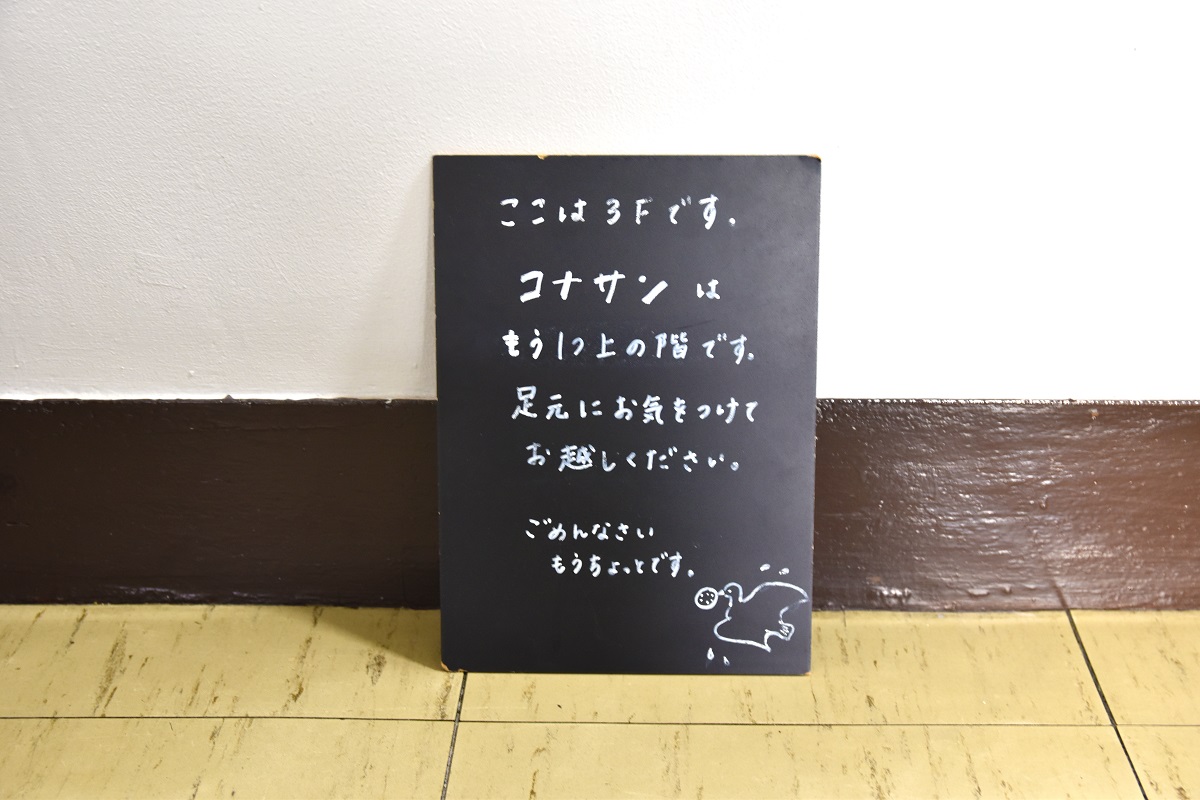 ここは3Fです。
コナサン は
もう1つ上の階です。
足元にお気をつけて
お越しください。
ごめんなさい
もうちょっとです。